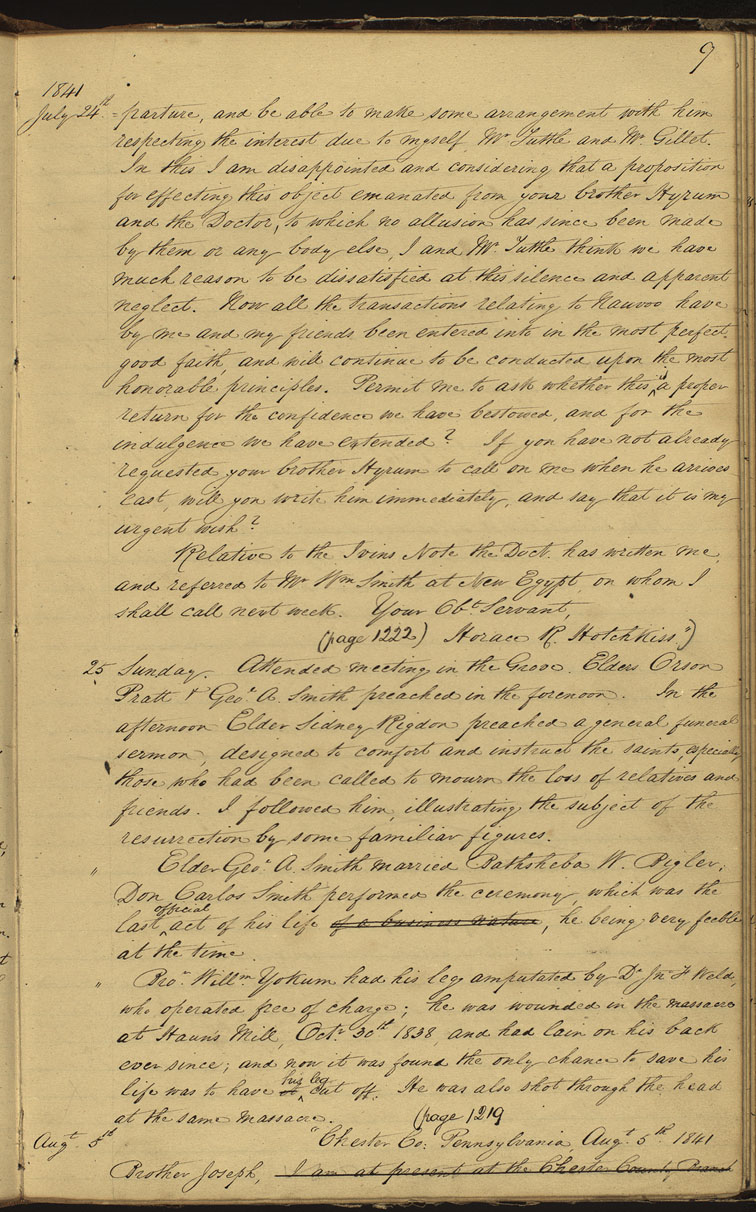 9
1841
July 24th. =parture, and be able to make some arrangement with him
respecting the interest due to myself, Mr. Tuttle and Mr. Gillet.
In this I am disappointed and considering that a proposition
for effecting this object emanated from your brother Hyrum
and the Doctor, to which no allusion has since been made
by them or any body else, I and Mr. Tuttle think we have
much reason to be dissatisfied at this silence and apparent
neglect. Now all the transactions relating to Nauvoo have
by me and my friends been entered into in the most perfect
good faith, and will continue to be conducted upon the most
honorable principles. Permit me to ask whether this is a proper
return for the confidence we have bestowed, and for the
indulgence we have extended? If you have not already
requested your brother Hyrum to call on me when he arrives
east, will you write him immediately, and say that it is my
urgent wish?
Relative to the Ivins Note the Doct. has written me,
and referred to Mr Wm Smith at New Egypt, on whom I
shall call next week. Your Obt. Servant,
(page 1222) Horace R. Hotchkiss.")
25 Sunday. Attended meeting in the Grove. Elders Orson
Pratt & Geo. A. Smith preached in the forenoon. In the
afternoon Elder Sidney Rigdon preached a general funeral
sermon, designed to comfort and instruct the saints, especially
those who had been called to mourn the loss of relatives and
friends. I followed him, illustrating the subject of the
resurrection by some familiar figures.
" Elder Geo. A. Smith married Bathsheba W. Bigler;
Don Carlos Smith performed the ceremony, which was the
last official act of his life of a business nature, he being very feeble
at the time.
" Bro. Willm. Yokum had his leg amputated by Dr. Jno F Weld,
who operated free of charge; he was wounded in the massacre
at Haun's Mill, Oct. 30th 1838, and had lain on his back
ever since; and now it was found the only chance to save his
life was to have it his leg cut off. He was also shot through the head
at the same massacre. (page 1219
Augt. 5th "Chester Co: Pennsylvania, Augt. 5th. 1841
Brother Joseph, I am at present at the Chester County Branch